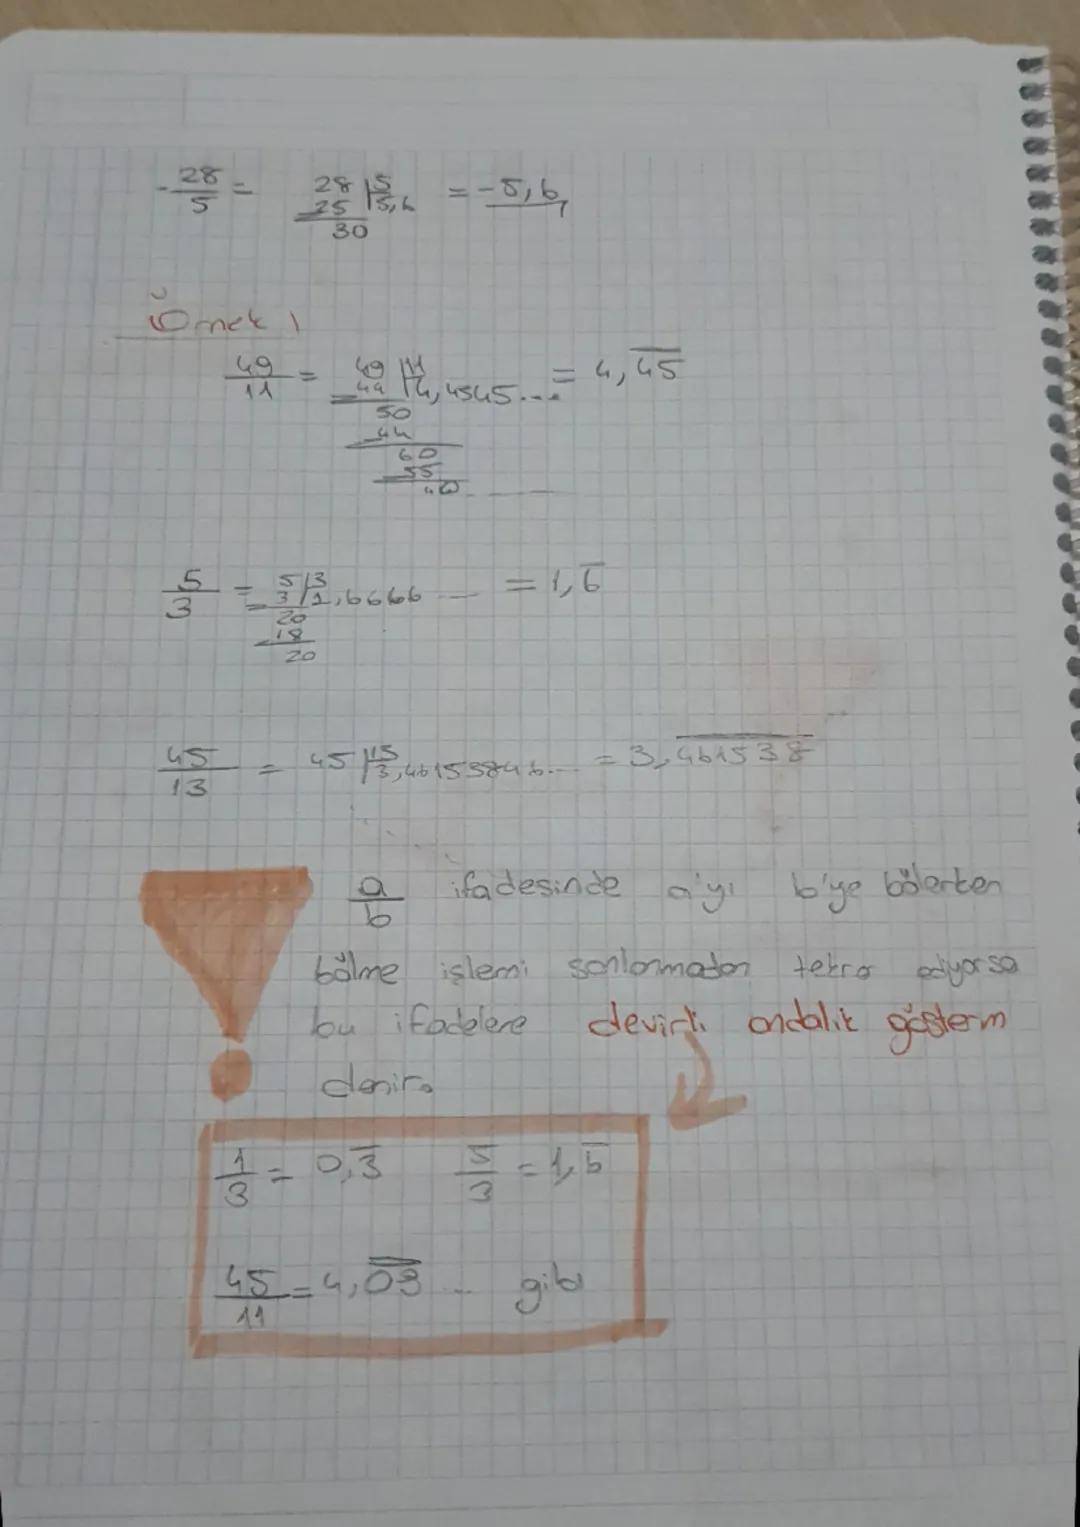 -28/5 = 28 |5 5,6 = -5,6
25
30
Örnek 1
49/11 = 49 |11 4,4545... = 4,4̅5̅
44
50
44
60
55
40
5/3 = 5 |3 1,6666 = 1,6̅
3
20
18
20
45/13 = 45 |13 3,46153846... = 3,4̅6̅1̅5̅3̅8̅
a/b ifadesinde a'yı b'ye bölerken
bölme işlemi sonlanmadan tekrar ediyorsa
bu ifadelere devirli ondalık gösterm
denir.
1/3 = 0,3̅ 5/3 = 1,6̅
45/11 = 4,0̅9̅ .. gibi